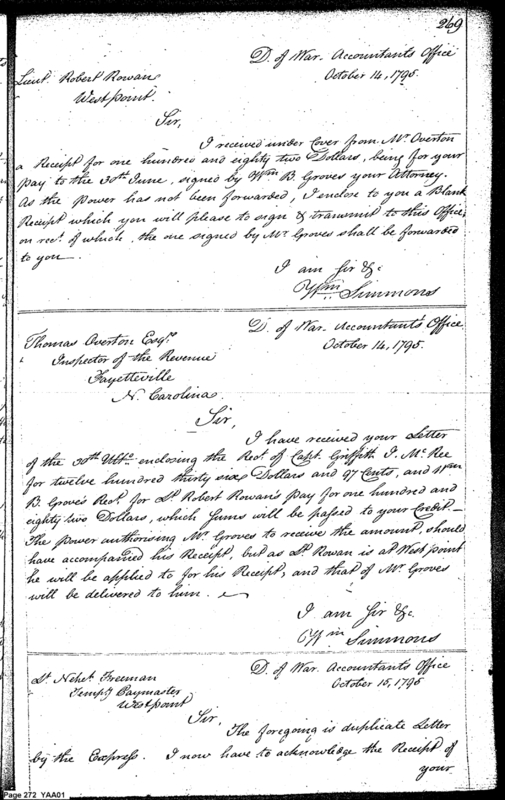 269
D. of War. Accountants Office
October 14, 1795.
Lieut. Robert Rowan
Westpoint.
Sir,
I received under Cover from Mr. Overton
a Receipt for one hundred and eighty two Dollars, being for your
pay to the 30th June, signed by Wm B. Groves your Attorney.
As the power has not been forwarded, I enclose to you a Blank
Receipt which you will please to sign & transmit to this Office,
on rect. of which, the one signed by Mr. Groves shall be forwarded
to you.
I am Sir &c.
Wm. Simmons
D. of War. Accountant's Office
October 14, 1795.
Thomas Overton Esqr.
Inspector of the Revenue
Fayetteville
N. Carolina.
Sir,
I have received your Letter
of the 30th Ulto. enclosing the Rect. of Capt. Griffith J. McRee
for twelve hundred thirty six Dollars and 97 Cents, and Wm
B. Groves Rect. for Lt. Robert Rowan's pay for one hundred and
eighty two Dollars, which sums will be passed to your Credit.—
The power authorising Mr. Groves to receive the amount, should
have accompanied his Receipt, but as Lt. Rowan is at West point
he will be applied to for his Receipt, and that of Mr. Groves
will be delivered to him.
I am Sir &c.
Wm Simmons
D. of War. Accountant's Office
October 15, 1795
Lt. Nehet. Freeman
Tempy. Paymaster
Westpoint
Sir,
The foregoing is duplicate Letter
by the Express. I now have to acknowledge the Receipt of
your
Page 272 YAA01